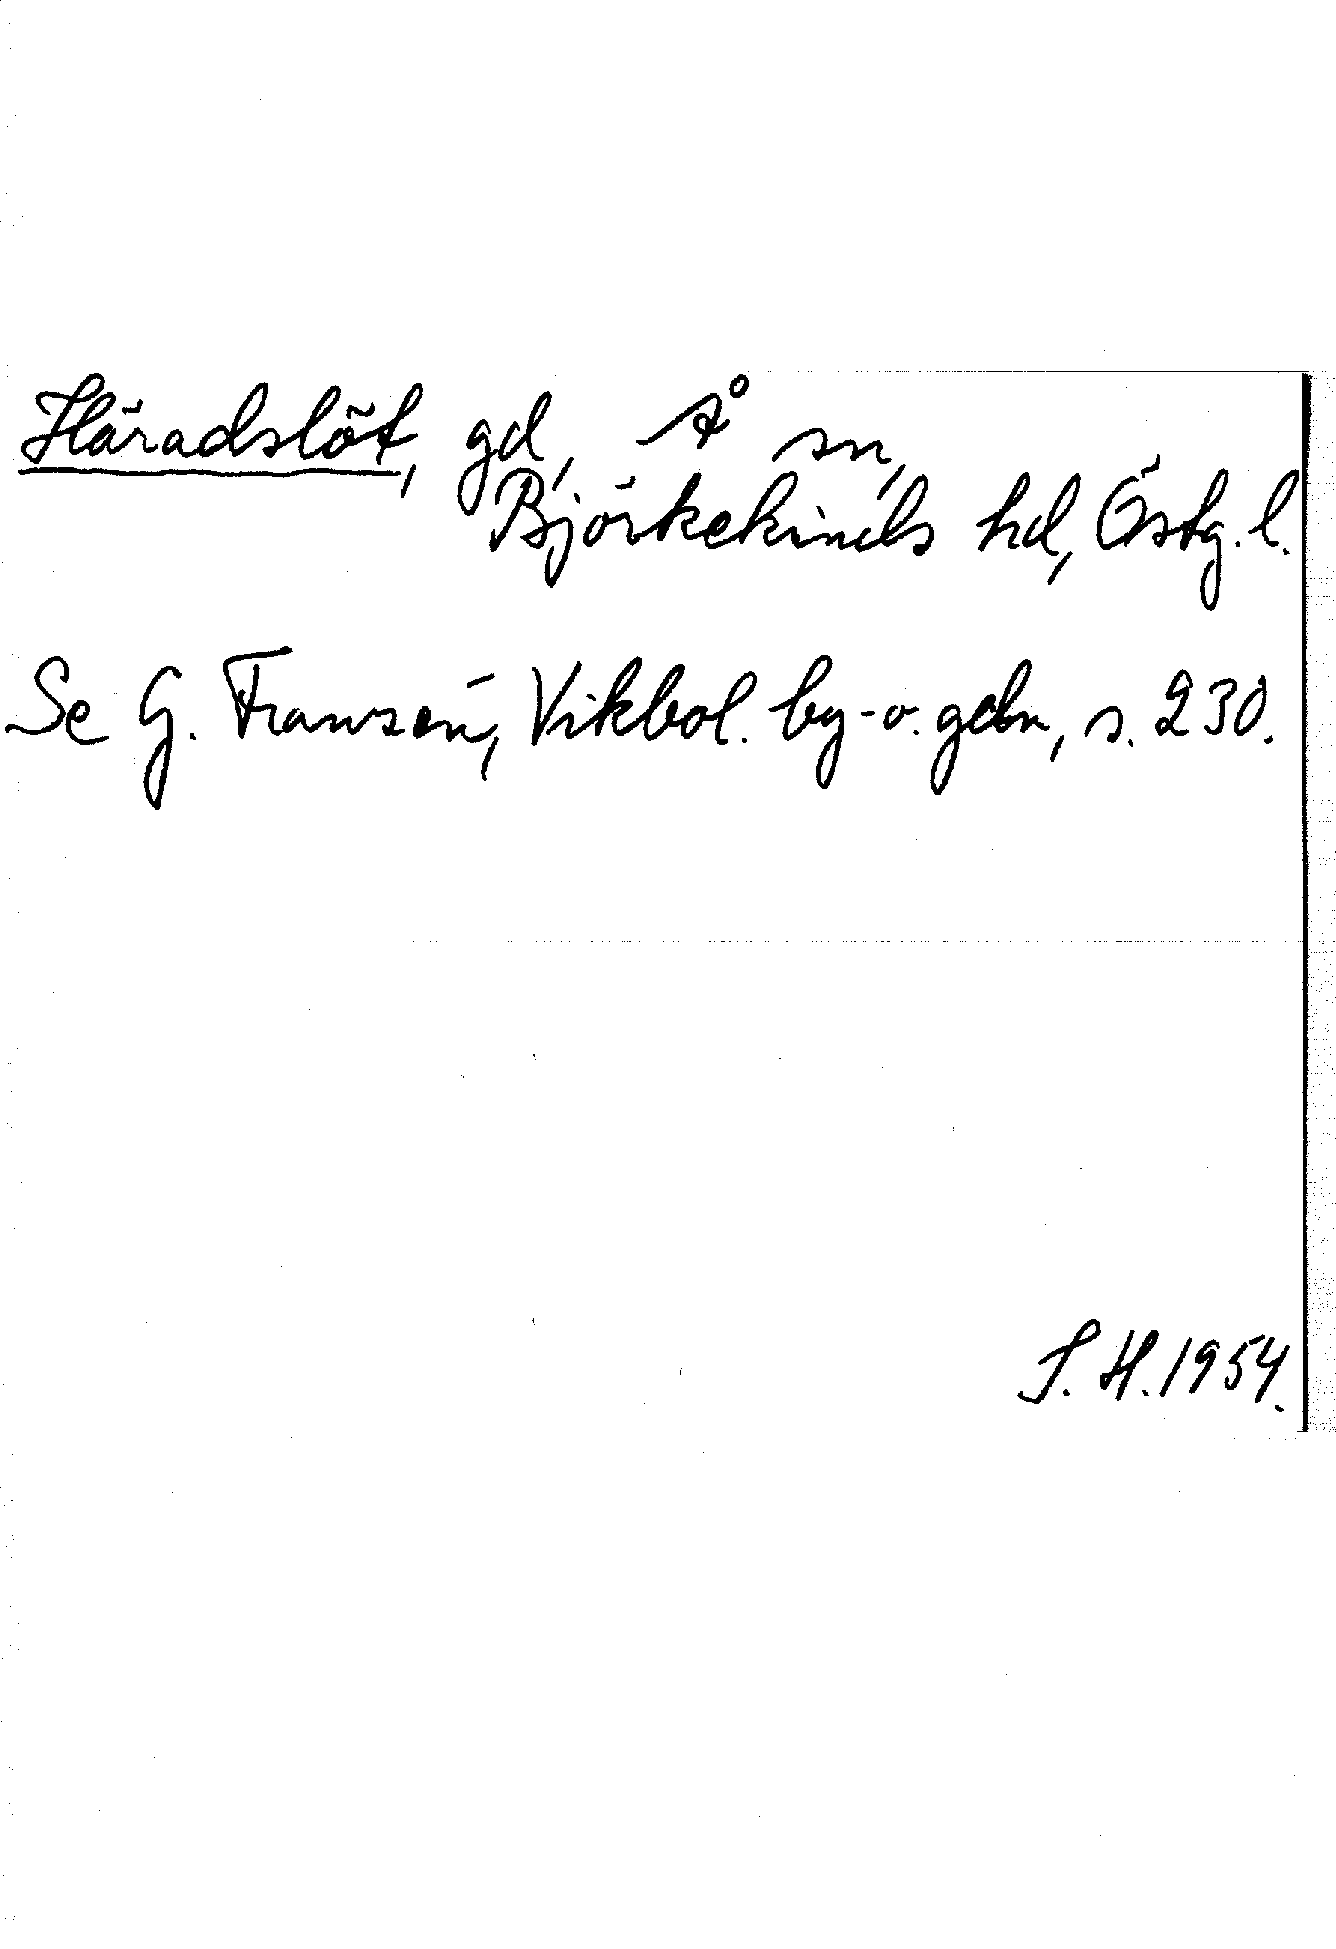 Häradslöt, gd, Å sn,
Björkekinds hd, Östg. l.
Se G. Franzén, Vikbol. by- o. gdn, s. 230.
S. H. 1954.